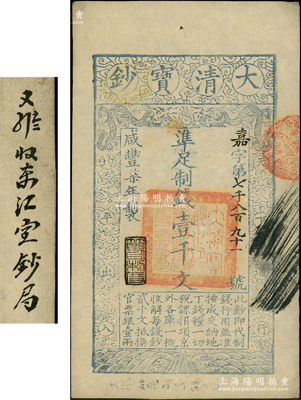 大清寶鈔
嘉字第七千六百九十一號
準足制錢壹千文
咸豐柒年製
天下通行
均平出入
此鈔即代制
錢行用並准
按成交納地
丁錢糧一切
稅課捐項京
外各庫一概
收解每錢鈔
貳千文抵換
官票銀壹兩
收來江室鈔局
上海陽明拍卖